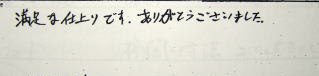 満足な仕上りです. ありがとうございました.